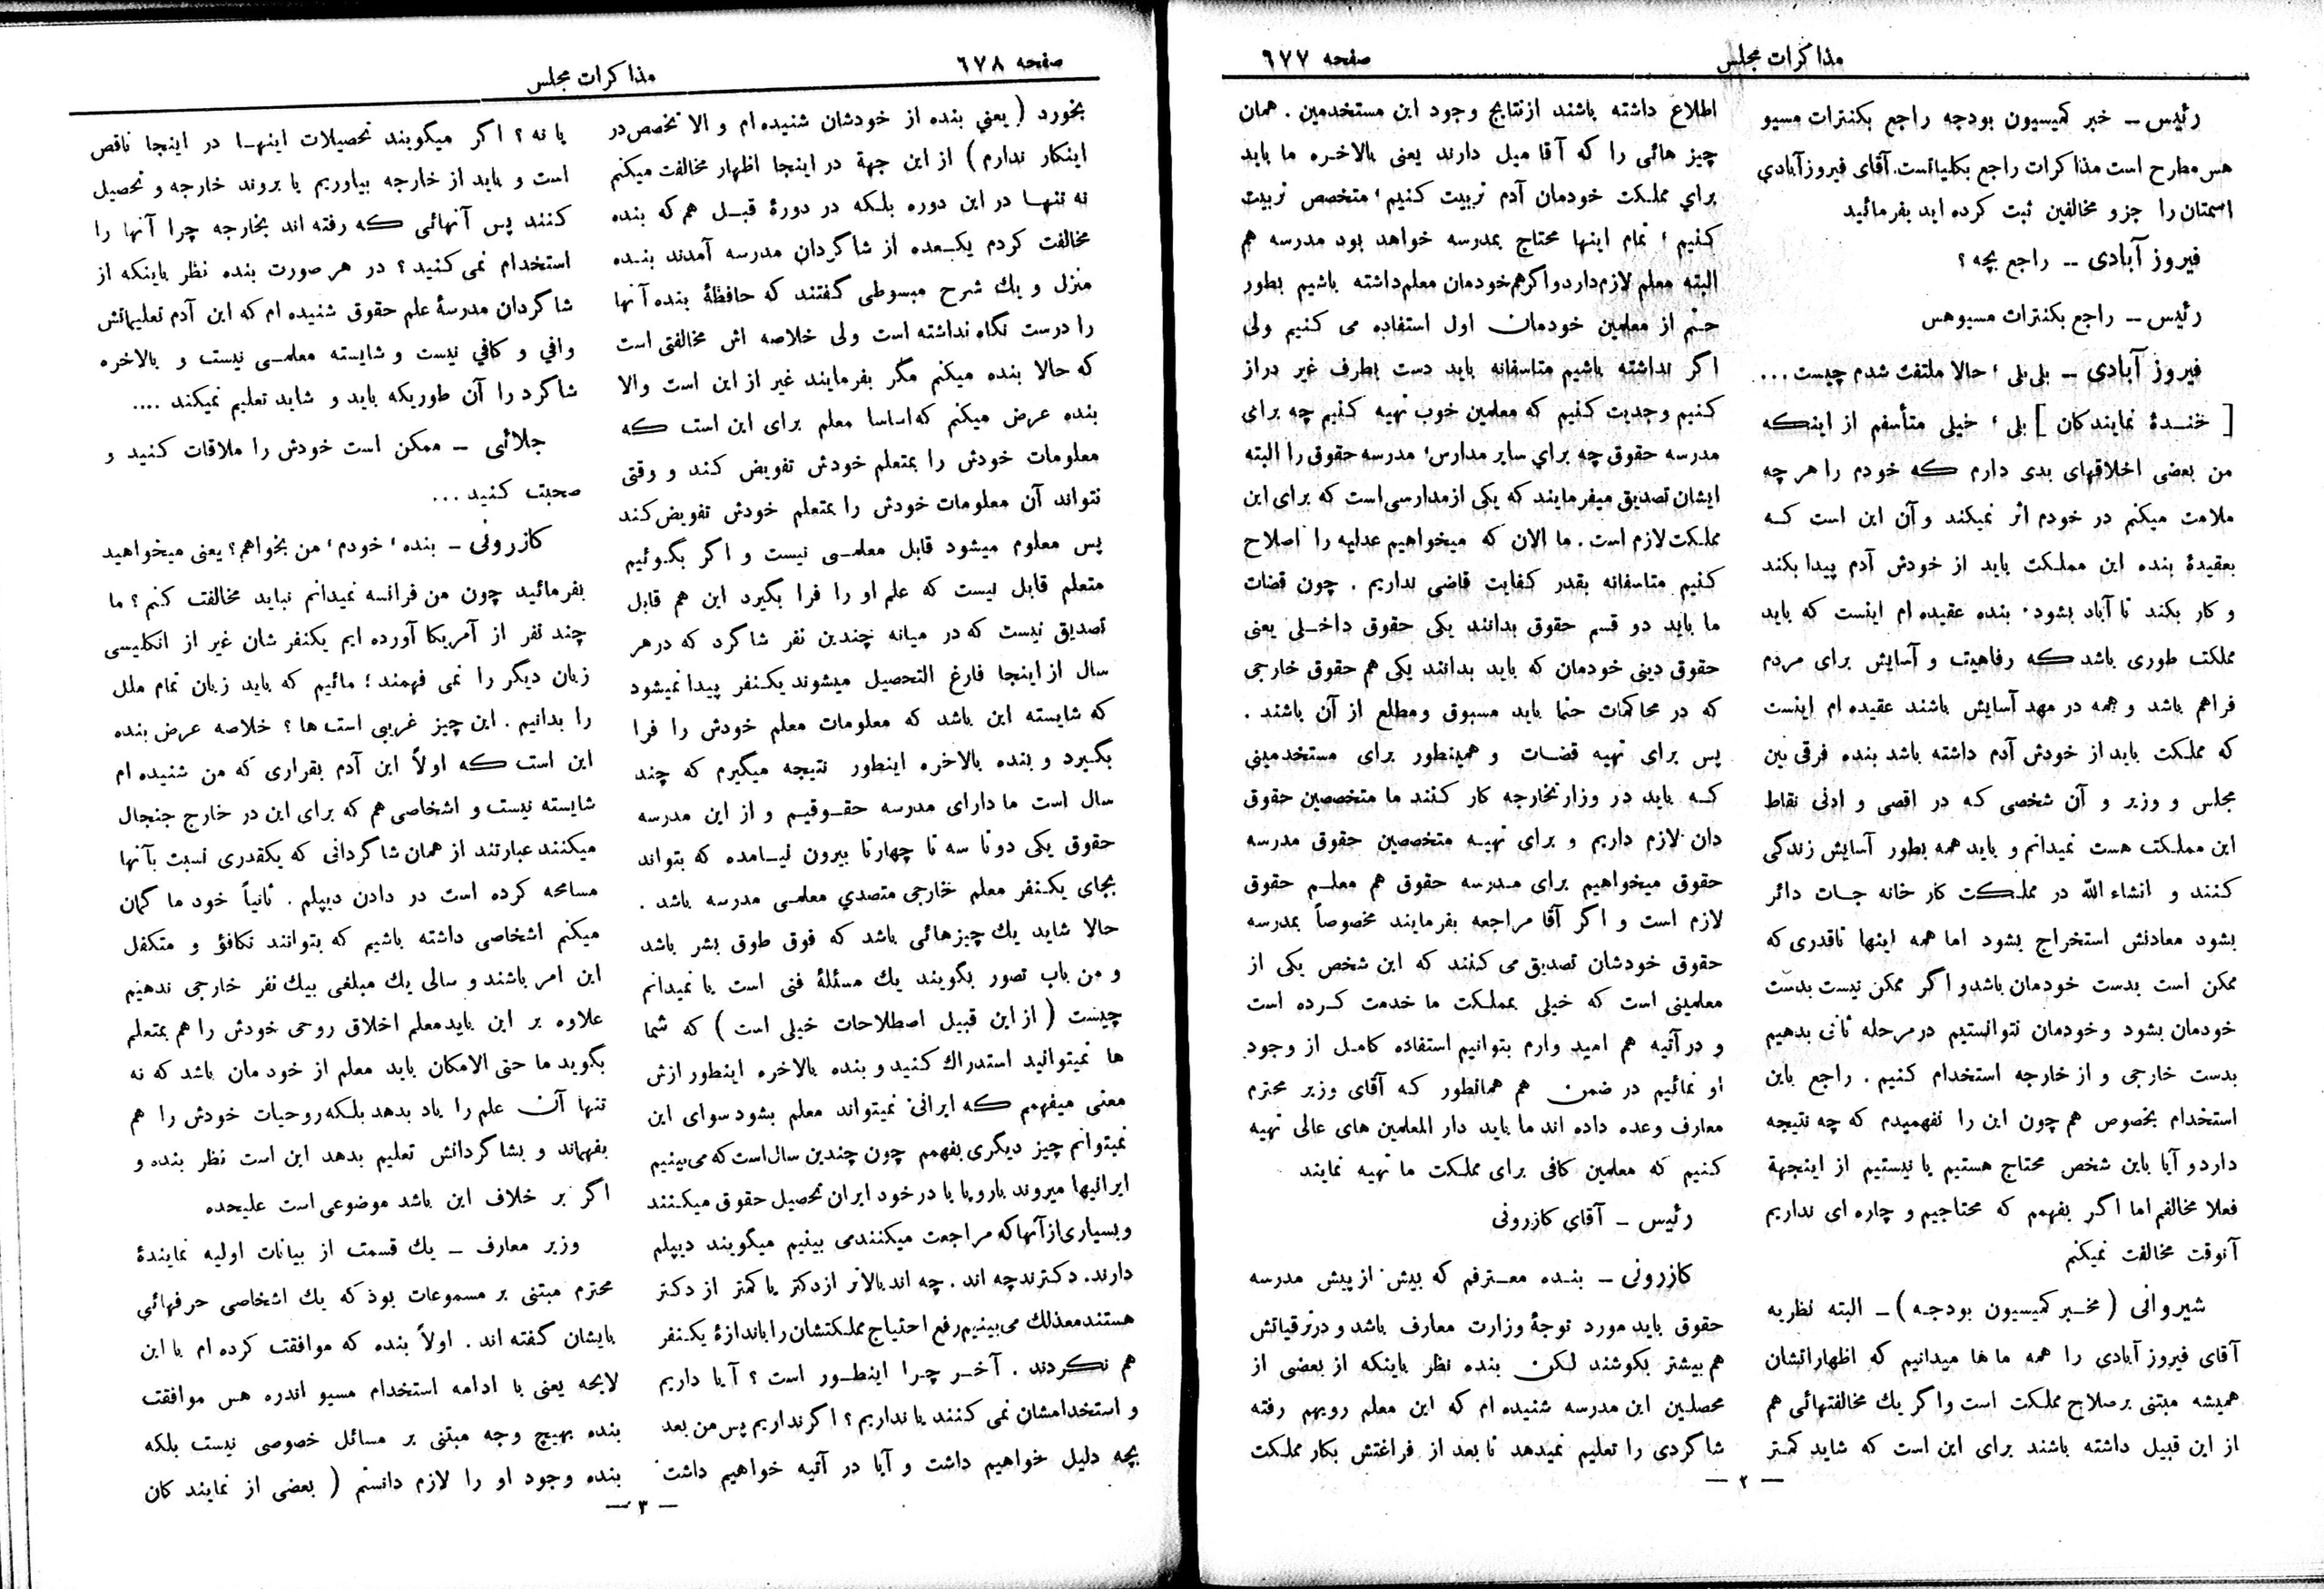 مذاکرات مجلس
صفحه ٦٧٧
رئیس – خبر کمیسیون بودجه راجع بکنترات مسیو
هس مطرح است مذاکرات راجع بکلیاتست. آقای فیروزآبادی
اسمتان را جزو مخالفین ثبت کرده اید بفرمائید
فیروز آبادی – راجع بچه ؟
رئیس – راجع بکنترات مسیوهس
فیروز آبادی – بلی بلی ، حالا ملتفت شدم چیست ...
[ خنـدۀ نمایندکان ] بلی ، خیلی متأسفم از اینکه
من بعضی اخلاقهای بدی دارم که خودم را هر چه
ملامت میکنم در خودم اثر نمیکند و آن این است کـه
بعقیدۀ بنده این مملکت باید از خودش آدم پیدا بکند
و کار بکند تا آباد بشود ، بنده عقیده ام اینست که باید
مملکت طوری باشد که رفاهیت و آسایش برای مردم
فراهم باشد و همه در مهد آسایش باشند عقیده ام اینست
که مملکت باید از خودش آدم داشته باشد بنده فرقی بین
مجلس و وزیر و آن شخصی که در اقصی و ادنی نقاط
این مملکت هست نمیدانم و باید همه بطور آسایش زندگی
کنند و انشاء الله در مملکت کار خانه جـات دائر
بشود معادنش استخراج بشود اما همه اینها تاقدری که
ممکن است بدست خودمان باشد و اگر ممکن نیست بدست
خودمان بشود و خودمان نتوانستیم در مرحله ثانی بدهیم
بدست خارجی و از خارجه استخدام کنیم . راجع باین
استخدام بخصوص هم چون این را نفهمیدم که چه نتیجه
دارد و آیا باین شخص محتاج هستیم یا نیستیم از اینجهة
فعلا مخالفم اما اگر بفهمم که محتاجیم و چاره ای نداریم
آنوقت مخالفت نمیکنم
شیروانی ( مخـبر کمیسیون بودجـه ) – البته نظریه
آقای فیروز آبادی را همه ما ها میدانیم که اظهاراتشان
همیشه مبتنی بر صلاح مملکت است و اگر یك مخالفتهائی هم
از این قبیل داشته باشند برای این است که شاید کمتر
اطلاع داشته باشند از نتایج وجود این مستخدمین . همان
چیز هائی را که آقا میل دارند یعنی بالاخـره ما باید
برای مملکت خودمان آدم تربیت کنیم ، متخصص تربیت
کنیم ، تمام اینها محتاج بمدرسه خواهد بود مدرسه هم
البته معلم لازم دارد و اگر هم خودمان معلم داشته باشیم بطور
حتم از معلمین خودمان اول استفاده می کنیم ولی
اگر نداشته باشیم متاسفانه باید دست بطرف غیر دراز
کنیم و جدیت کنیم که معلمین خوب تهیه کنیم چه برای
مدرسه حقوق چه برای سایر مدارس ، مدرسه حقوق را البته
ایشان تصدیق میفرمایند که یکی از مدارسی است که برای این
مملکت لازم است . ما الان که میخواهیم عدلیه را اصلاح
کنیم متاسفانه بقدر کفایت قاضی نداریم . چون قضات
ما باید دو قسم حقوق بدانند یکی حقوق داخـلی یعنی
حقوق دینی خودمان که باید بدانند یکی هم حقوق خارجی
که در محاکمات حتما باید مسبوق و مطلع از آن باشند .
پس برای تهیه قضـات و همینطور برای مستخدمینی
کـه باید در وزارتخارجه کار کنند ما متخصصین حقوق
دان لازم داریم و برای تهیـه متخصصین حقوق مدرسه
حقوق میخواهیم برای مدرسه حقوق هم معلـم حقوق
لازم است و اگر آقا مراجعه بفرمایند مخصوصاً بمدرسه
حقوق خودشان تصدیق می کنند که این شخص یکی از
معلمینی است که خیلی بمملکت ما خدمت کـرده است
و در آتیه هم امید وارم بتوانیم استفاده کامـل از وجود
او نمائیم در ضمن هم همانطور که آقای وزیر محترم
معارف وعده داده اند ما باید دار المعلمین های عالی تهیه
کنیم که معلمین کافی برای مملکت ما تهیه نمایند
رئیس – آقای کازرونی
کازرونی – بنـده معـترفم که بیش از پیش مدرسه
حقوق باید مورد توجۀ وزارت معارف باشد و در ترقیاتش
هم بیشتر بکوشند لـکن بنده نظر باینکه از بعضی از
محصلین این مدرسه شنیده ام که این معلم رویهم رفته
شاگردی را تعلیم نمیدهد تا بعد از فراغتش بکار مملکت
— ٢ —
صفحه ٦٧٨
مذاکرات مجلس
بخورد ( یعنی بنده از خودشان شنیده ام و الا تخصص در
اینکار ندارم ) از این جهة در اینجا اظهار مخالفت میکنم
نه تنهـا در این دوره بلکه در دورۀ قبـل هم که بنده
مخالفت کردم یکـعده از شاگردان مدرسه آمدند بنـده
منزل و یك شرح مبسوطی گفتند که حافظۀ بنده آنها
را درست نگاه نداشته است ولی خلاصه اش مخالفتی است
که حالا بنده میکنم مگر بفرمایند غیر از این است والا
بنده عرض میکنم که اساسا معلم برای این است که
معلومات خودش را بمتعلم خودش تفویض کند و وقتی
نتواند آن معلومات خودش را بمتعلم خودش تفویض کند
پس معلوم میشود قابل معلمـی نیست و اگر بگـوئیم
متعلم قابل نیست که علم او را فرا بگیرد این هم قابل
تصدیق نیست که در میانه چندین نفر شاگرد که در هر
سال از اینجا فارغ التحصیل میشوند یکـنفر پیدا نمیشود
که شایسته این باشد که معلومات معلم خودش را فرا
بگـیرد و بنده بالاخره اینطور نتیجه میگیرم که چند
سال است ما دارای مدرسه حقـوقیـم و از این مدرسه
حقوق یکی دو تا سه تا چهار تا بیرون نیـامده که بتواند
بجای یکـنفر معلم خارجی متصدی معلمـی مدرسه باشد .
حالا شاید یك چیزهائی باشد که فوق طوق بشر باشد
و من باب تصور بگویند یك مسئلۀ فنی است یا نمیدانم
چیست ( از این قبیل اصطلاحات خیلی است ) که شما
ها نمیتوانید استدراك کنید و بنده بالاخره اینطور ازش
معنی میفهمم که ایرانی نمیتواند معلم بشود سوای این
نمیتوانم چیز دیگری بفهمم چون چندین سال است که می بینیم
ایرانیها میروند باروپا یا در خود ایران تحصیل حقوق میکنند
و بسیاری از آنها که مراجعت میکنند می بینیم میگویند دیپلم
دارند . دکترند چه اند . چه اند بالاتر از دکتر یا کمتر از دکتر
هستند معذلك می بینیم رفع احتیاج مملکتشان را باندازۀ یکـنفر
هم نکردند . آخـر چـرا اینطـور است ؟ آیا داریم
و استخدامشان نمی کنند یا نداریم ؟ اگر نداریم پس من بعد
بچه دلیل خواهیم داشت و آیا در آتیه خواهیم داشت
یا نه ؟ اگر میگویند تحصیلات اینهـا در اینجا ناقص
است و باید از خارجه بیاوریم یا بروند خارجه و تحصیل
کنند پس آنهائی که رفته اند بخارجه چرا آنها را
استخدام نمی کنید ؟ در هر صورت بنده نظر باینکه از
شاگردان مدرسۀ علم حقوق شنیده ام که این آدم تعلیماتش
وافی و کافی نیست و شایسته معلمـی نیست و بالاخره
شاگرد را آن طوریکه باید و شاید تعلیم نمیکند ....
جلائی – ممکن است خودش را ملاقات کنید و
صحبت کنید ...
کازرونی – بنده ، خودم ، من بخواهم ؟ یعنی میخواهید
بفرمائید چون من فرانسه نمیدانم نباید مخالفت کنم ؟ ما
چند نفر از آمریکا آورده ایم یکنفر شان غیر از انگلیسی
زبان دیگر را نمی فهمند ؛ مائیم که باید زبان تمام ملل
را بدانیم . این چیز غریبی است ها ؟ خلاصه عرض بنده
این است که اولاً این آدم بقراری که من شنیده ام
شایسته نیست و اشخاصی هم که برای این در خارج جنجال
میکنند عبارتند از همان شاگردانی که یکقدری نسبت بآنها
مسامحه کرده است در دادن دیپلم . ثانیاً خود ما گمان
میکنم اشخاصی داشته باشیم که بتوانند تکافؤ و متکفل
این امر باشند و سالی یك مبلغی بیك نفر خارجی ندهیم
علاوه بر این باید معلم اخلاق روحی خودش را هم بمتعلم
بگوید ما حتی الامکان باید معلم از خودمان باشد که نه
تنها آن علم را یاد بدهد بلکه روحیات خودش را هم
بفهماند و بشاگردانش تعلیم بدهد این است نظر بنده و
اگر بر خلاف این باشد موضوعی است علیحده
وزیر معارف – یك قسمت از بیانات اولیه نمایندۀ
محترم مبتنی بر مسموعات بود که یك اشخاصی حرفهائی
بایشان گفته اند . اولاً بنده که موافقت کرده ام با این
لایحه یعنی با ادامه استخدام مسیو اندره هس موافقت
بنده بهیچ وجه مبتنی بر مسائل خصوصی نیست بلکه
بنده وجود او را لازم دانستم ( بعضی از نمایند کان
— ٣ —